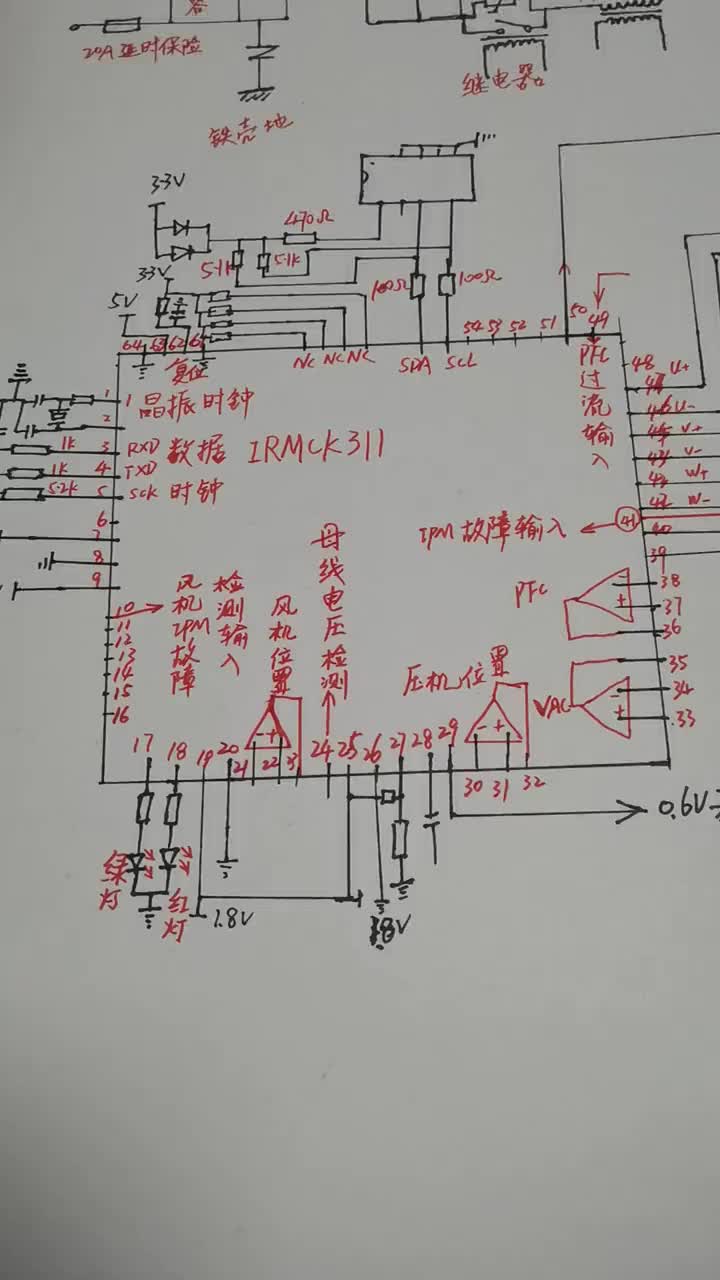 容
20A延时保险
继电器
铁壳地
3.3V
470Ω
5.1K
5.1K
3.3V
100Ω
100Ω
5V
64 63 62 61
复位
NC NC NC NC
SDA
SCL
54 53 52 51 50 49
PFC过流输入
1
1 晶振时钟
2
1K 3 RXD 数据
1K 4 TXD
5.2K 5 SCK 时钟
IRMCK311
6
7
8
9
10
11
12
13
14
15
16
风机IPM故障
检测输入
风机位置
母线电压检测
IPM故障输入
压机位置
PFC
VAC
48
47 U+
46 U-
45 V+
43 V-
43 W+
42 W-
41
40
39
38
37
36
35
34
33
- +
- +
- +
- +
17 18 19 20 21 22 23 24 25 26 27 28 29 30 31 32
0.6V
绿灯
红灯
1.8V
1.8V